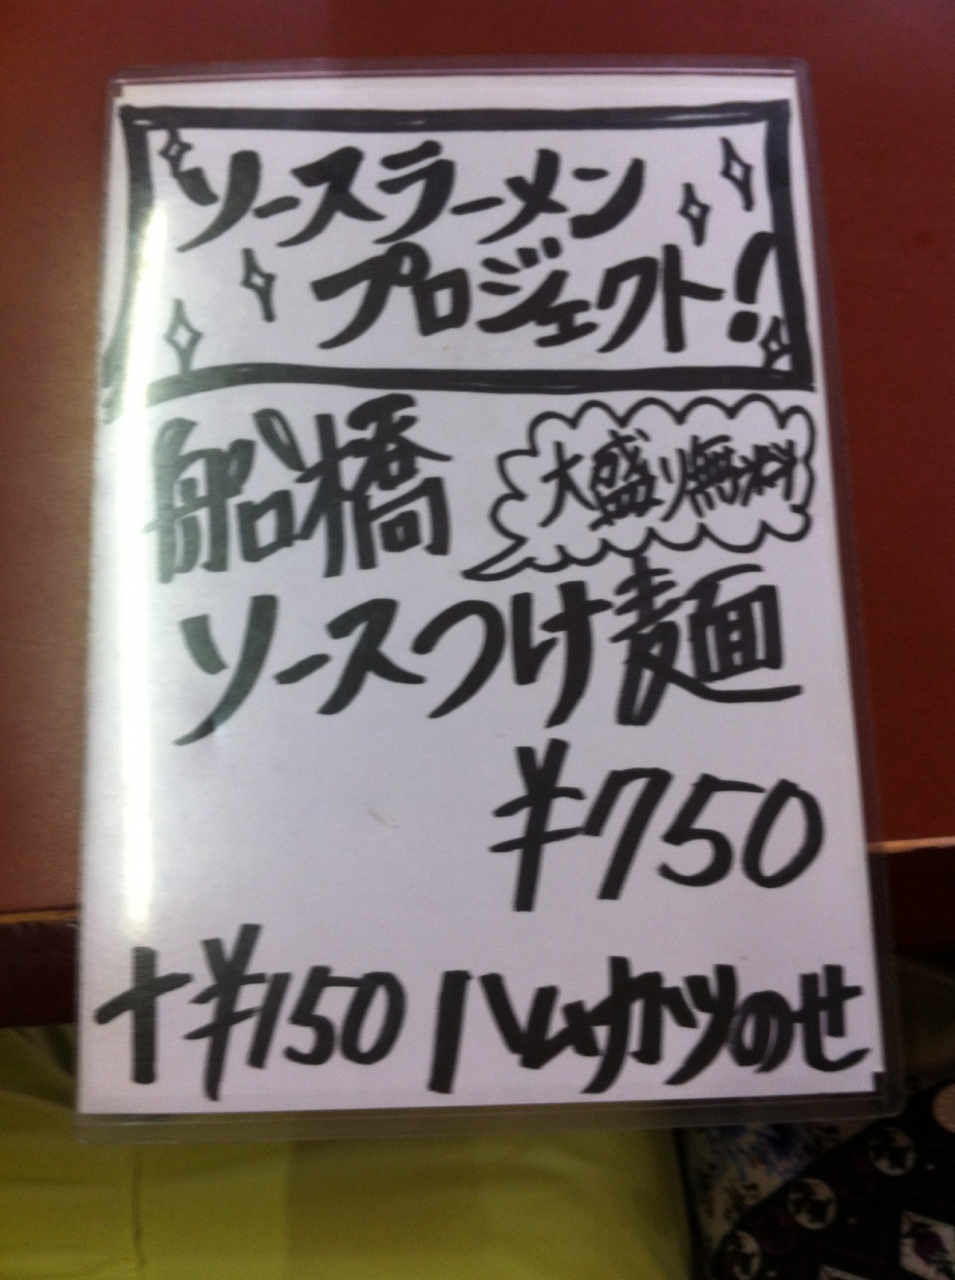 ソースラーメン
プロジェクト!
船橋
大盛り無料
ソースつけ麺
¥750
+¥150 ハムカツのせ